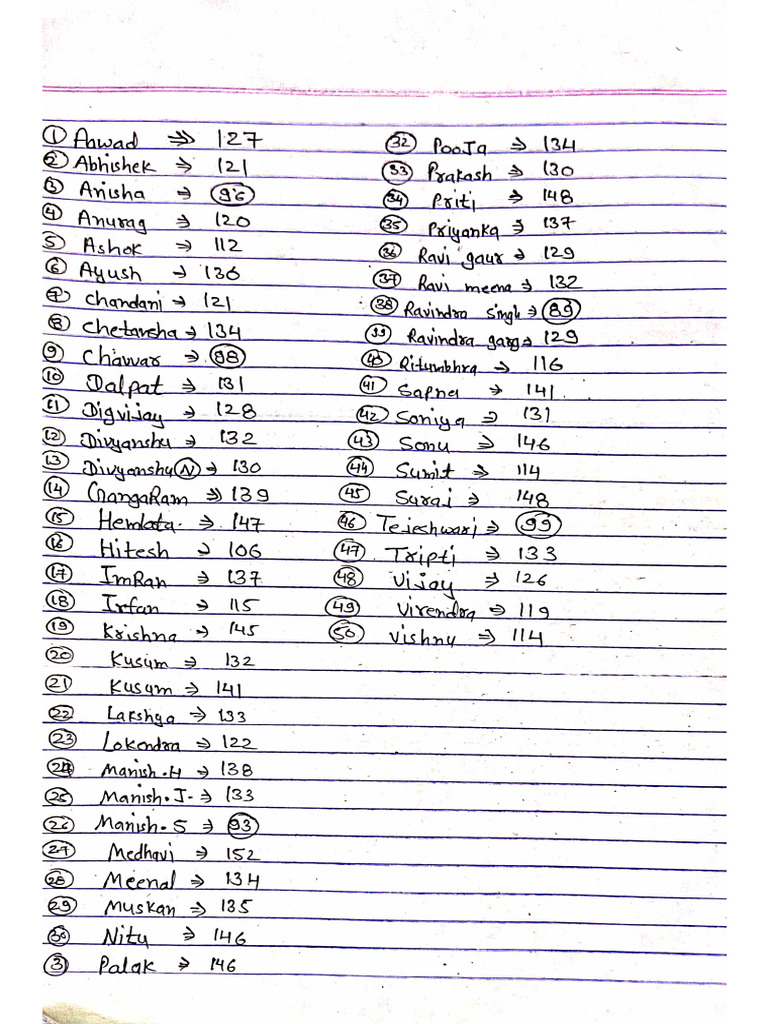 ① Aawad ⇒ 127
② Abhishek ⇒ 121
③ Anisha ⇒ 96
④ Anurag ⇒ 120
⑤ Ashok ⇒ 112
⑥ Ayush ⇒ 136
⑦ Chandani ⇒ 121
⑧ Chetansha ⇒ 134
⑨ Chawar ⇒ 98
⑩ Dalpat ⇒ 131
⑪ Digvijay ⇒ 128
⑫ Divyanshu ⇒ 132
⑬ Divyanshu Ⓝ ⇒ 130
⑭ GangaRam ⇒ 139
⑮ Hemlata ⇒ 147
⑯ Hitesh ⇒ 106
⑰ ImRan ⇒ 137
⑱ Irfan ⇒ 115
⑲ Krishna ⇒ 145
⑳ Kusum ⇒ 132
㉑ Kusum ⇒ 141
㉒ Lakshya ⇒ 133
㉓ Lokendra ⇒ 122
㉔ Manish.H ⇒ 138
㉕ Manish.J- ⇒ 133
㉖ Manish.S ⇒ 93
㉗ Medhavi ⇒ 152
㉘ Meenal ⇒ 134
㉙ Muskan ⇒ 135
㉚ Nitu ⇒ 146
㉛ Palak ⇒ 146
㉜ PooJa ⇒ 134
㉝ Prakash ⇒ 130
㉞ Priti ⇒ 148
㉟ Priyanka ⇒ 137
㊱ Ravi gaur ⇒ 129
㊲ Ravi meena ⇒ 132
㊳ Ravindra singh ⇒ 89
㊴ Ravindra garg ⇒ 129
㊵ Ritumbhra ⇒ 116
㊶ Sapna ⇒ 141
㊷ Soniya ⇒ 131
㊸ Sonu ⇒ 146
㊹ Sumit ⇒ 114
㊺ Suraj ⇒ 148
㊻ Tejeshwari ⇒ 99
㊼ Tripti ⇒ 133
㊽ Vijay ⇒ 126
㊾ Virendra ⇒ 119
㊿ Vishnu ⇒ 114